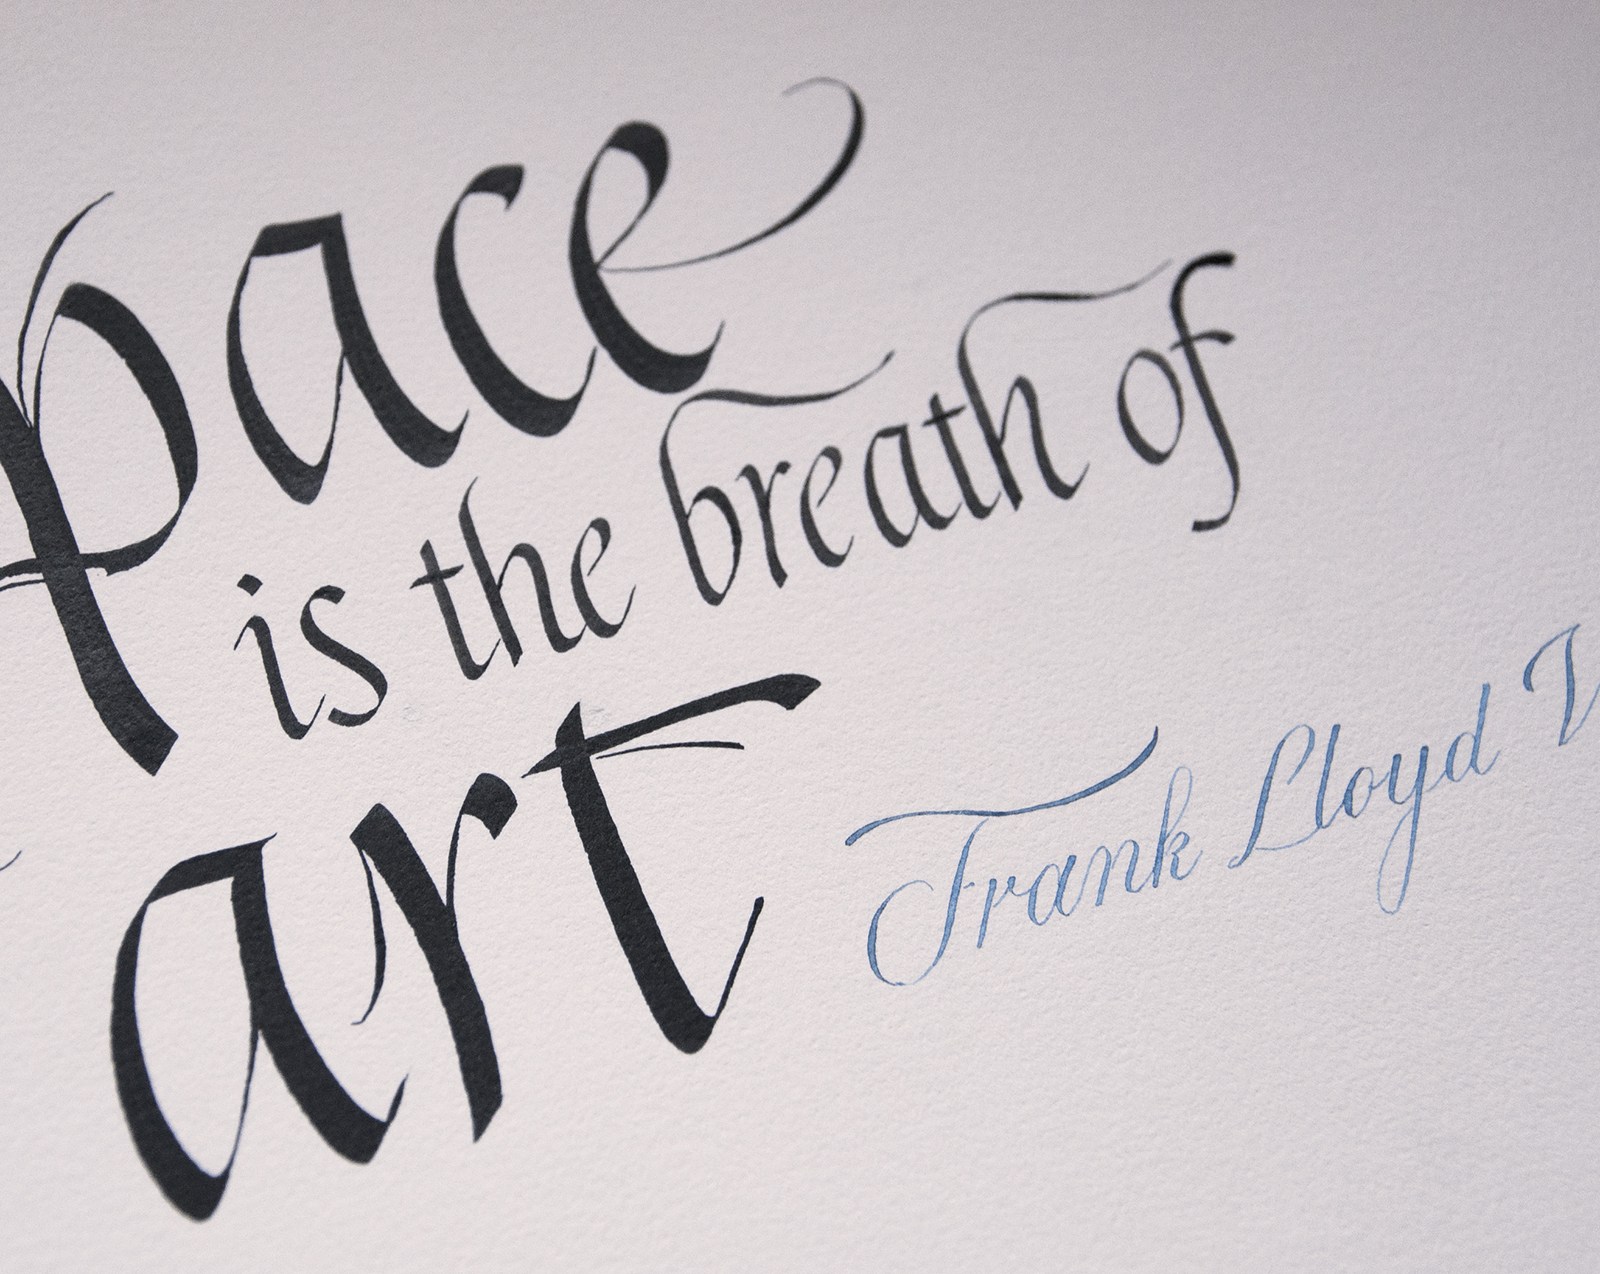 pace
is the breath of
art
Frank Lloyd